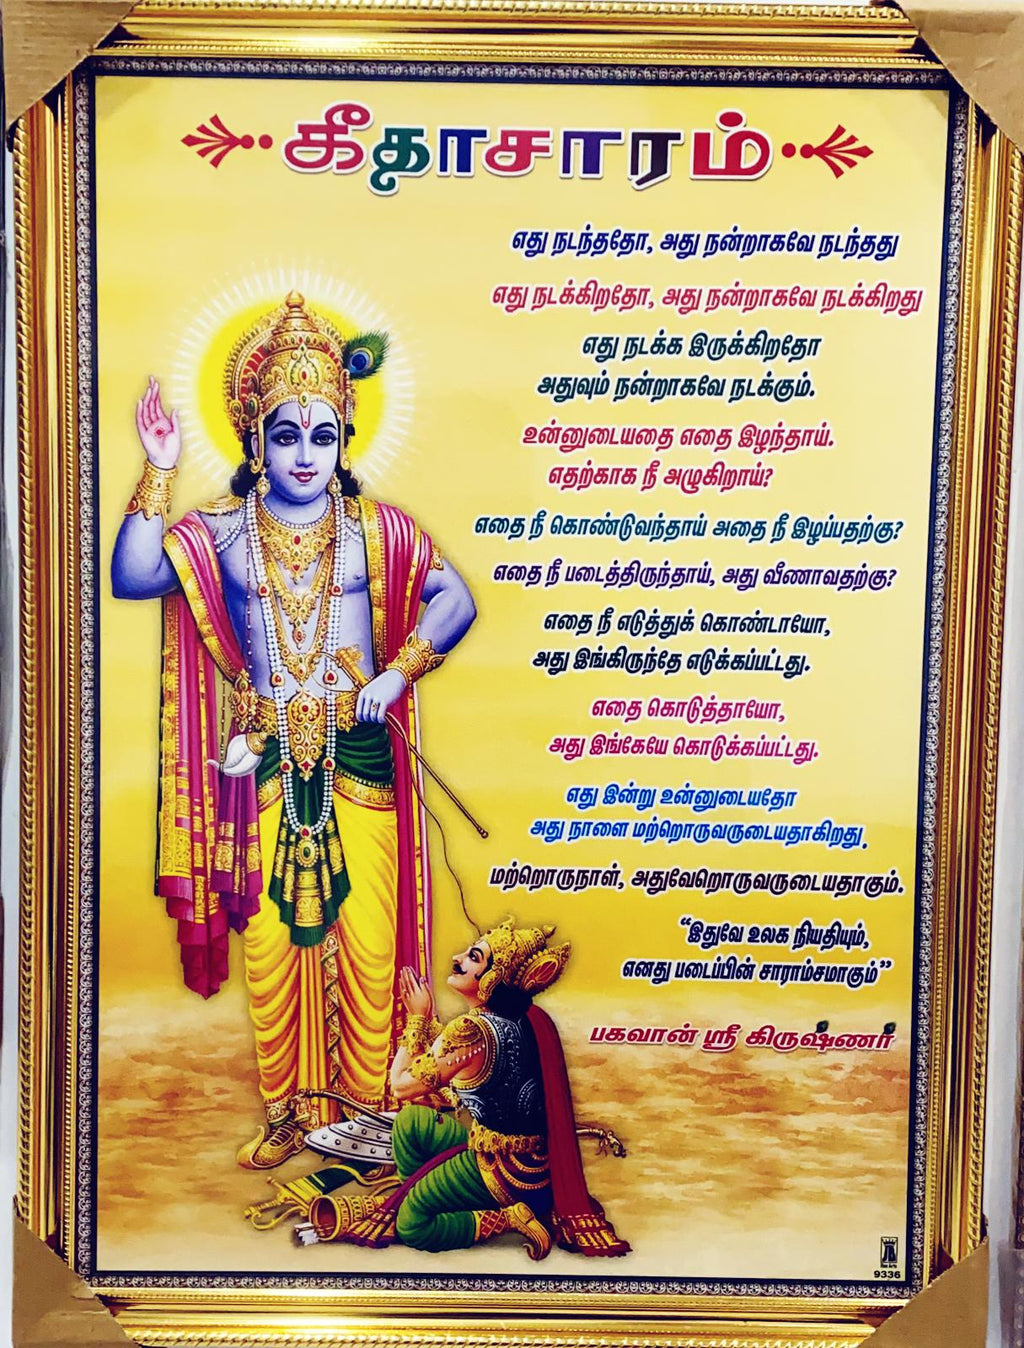 கீதாசாரம்
எது நடந்ததோ, அது நன்றாகவே நடந்தது
எது நடக்கிறதோ, அது நன்றாகவே நடக்கிறது
எது நடக்க இருக்கிறதோ
அதுவும் நன்றாகவே நடக்கும்.
உன்னுடையதை எதை இழந்தாய்.
எதற்காக நீ அழுகிறாய்?
எதை நீ கொண்டுவந்தாய் அதை நீ இழப்பதற்கு?
எதை நீ படைத்திருந்தாய், அது வீணாவதற்கு?
எதை நீ எடுத்துக் கொண்டாயோ,
அது இங்கிருந்தே எடுக்கப்பட்டது.
எதை கொடுத்தாயோ,
அது இங்கேயே கொடுக்கப்பட்டது.
எது இன்று உன்னுடையதோ
அது நாளை மற்றொருவருடையதாகிறது.
மற்றொருநாள், அதுவேறொருவருடையதாகும்.
“இதுவே உலக நியதியும்,
எனது படைப்பின் சாராம்சமாகும்”
பகவான் ஸ்ரீ கிருஷ்ணர்
9336